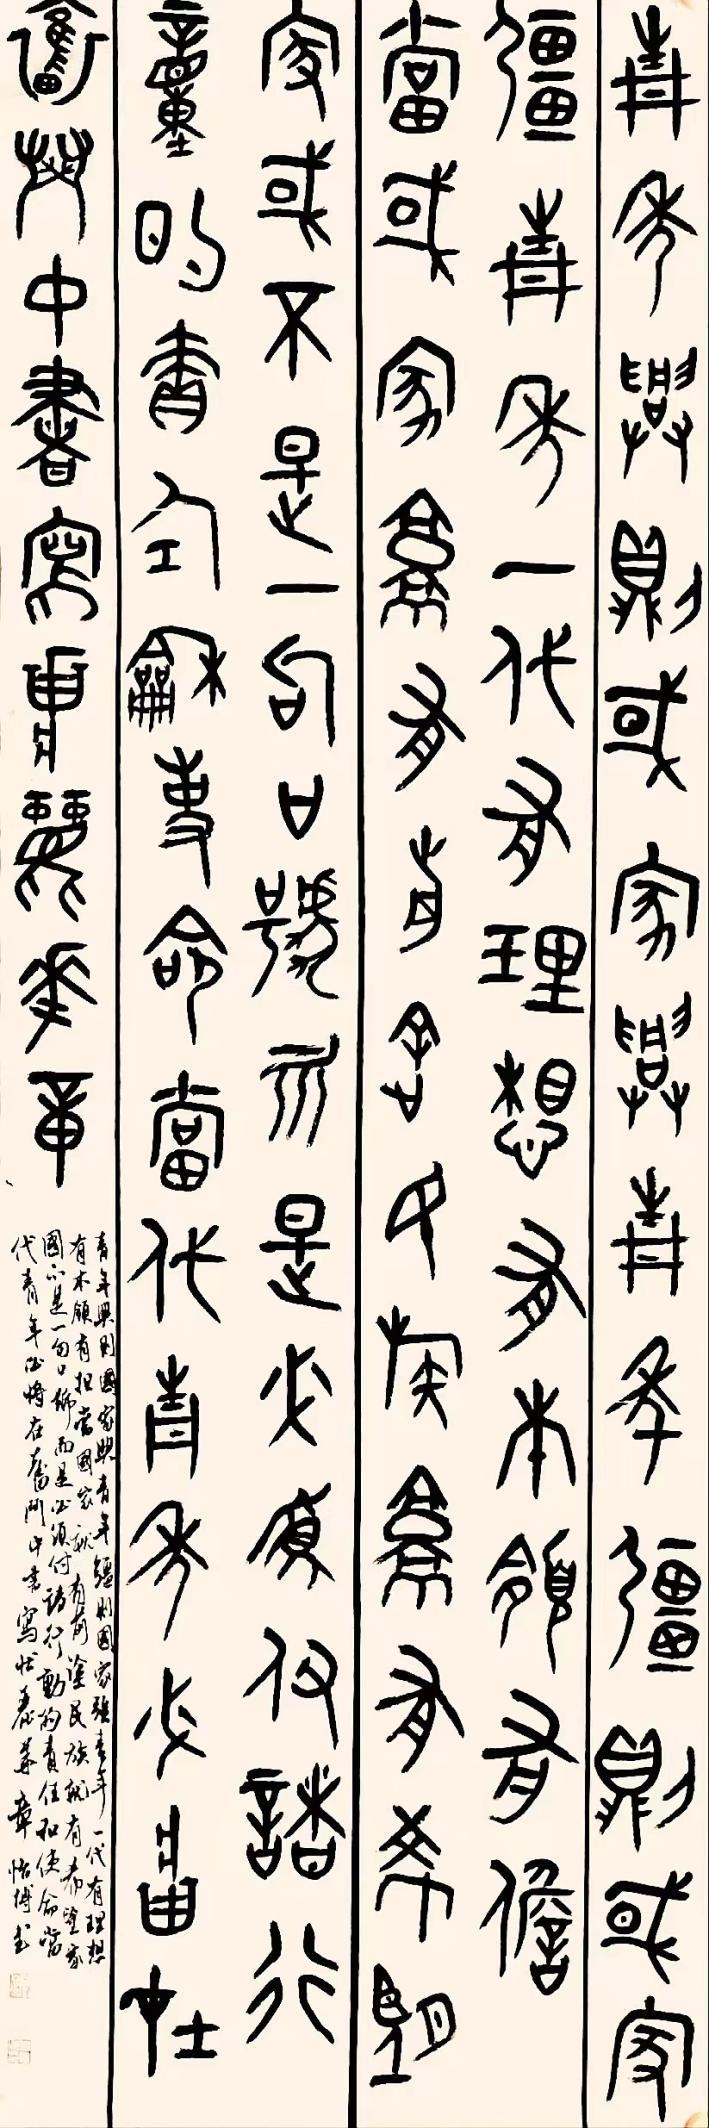 青年興則國家興青年彊則國家
彊青年一代有理想有本領有擔
當國家就有前途民族就有希望
家國不是一句口號而是必須付諸行
動的責任和使命當代青年必將在
奮鬥中書寫壯麗華章
青年興則國家興青年彊則國家強青年一代有理想
有本領有担當國家就有前途民族就有希望家
國不是一句口號而是必須付諸行動的責任和使命當
代青年必將在奮鬥中書寫壯麗華章怡博书